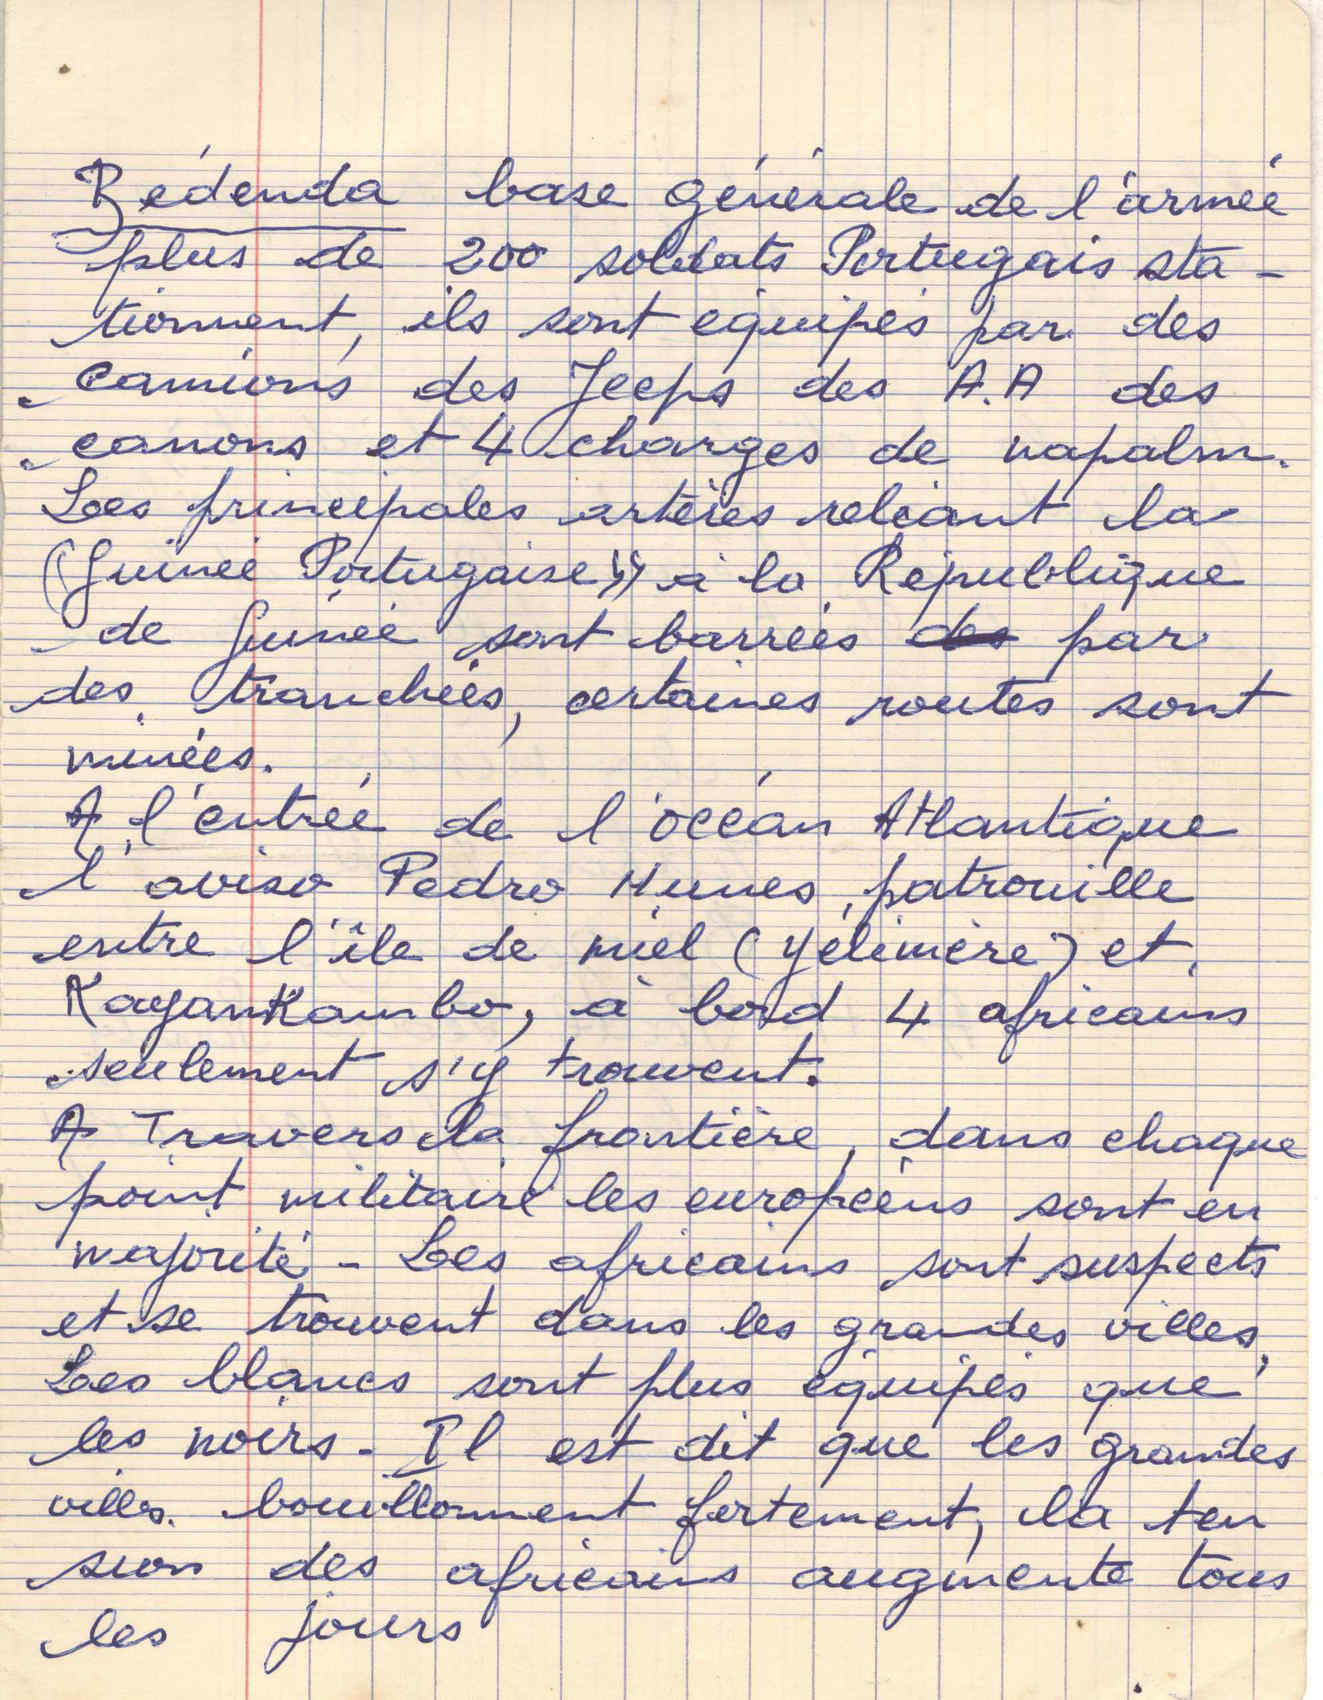 Bédenda base générale de l'armée
plus de 200 soldats Portugais sta-
tionnent, ils sont équipés par des
camions des Jeeps des A.A des
canons et 4 charges de napalm.
Les principales artères reliant la
(Guinée Portugaise)) à la République
de Guinée sont barrées des par
des tranchées, certaines routes sont
minées.
A l'entrée de l'océan Atlantique
l'aviso Pedro Nunes, patrouille
entre l'île de miel (Yélimère) et
KayanKambo, à bord 4 africains
seulement s'y trouvent.
A Travers la frontière, dans chaque
point militaire les européens sont en
majorité - Les africains sont suspects
et se trouvent dans les grandes villes,
Les blancs sont plus équipés que
les noirs - Il est dit que les grandes
villes. bouillonnent fortement, la ten
sion des africains augmente tous
les jours